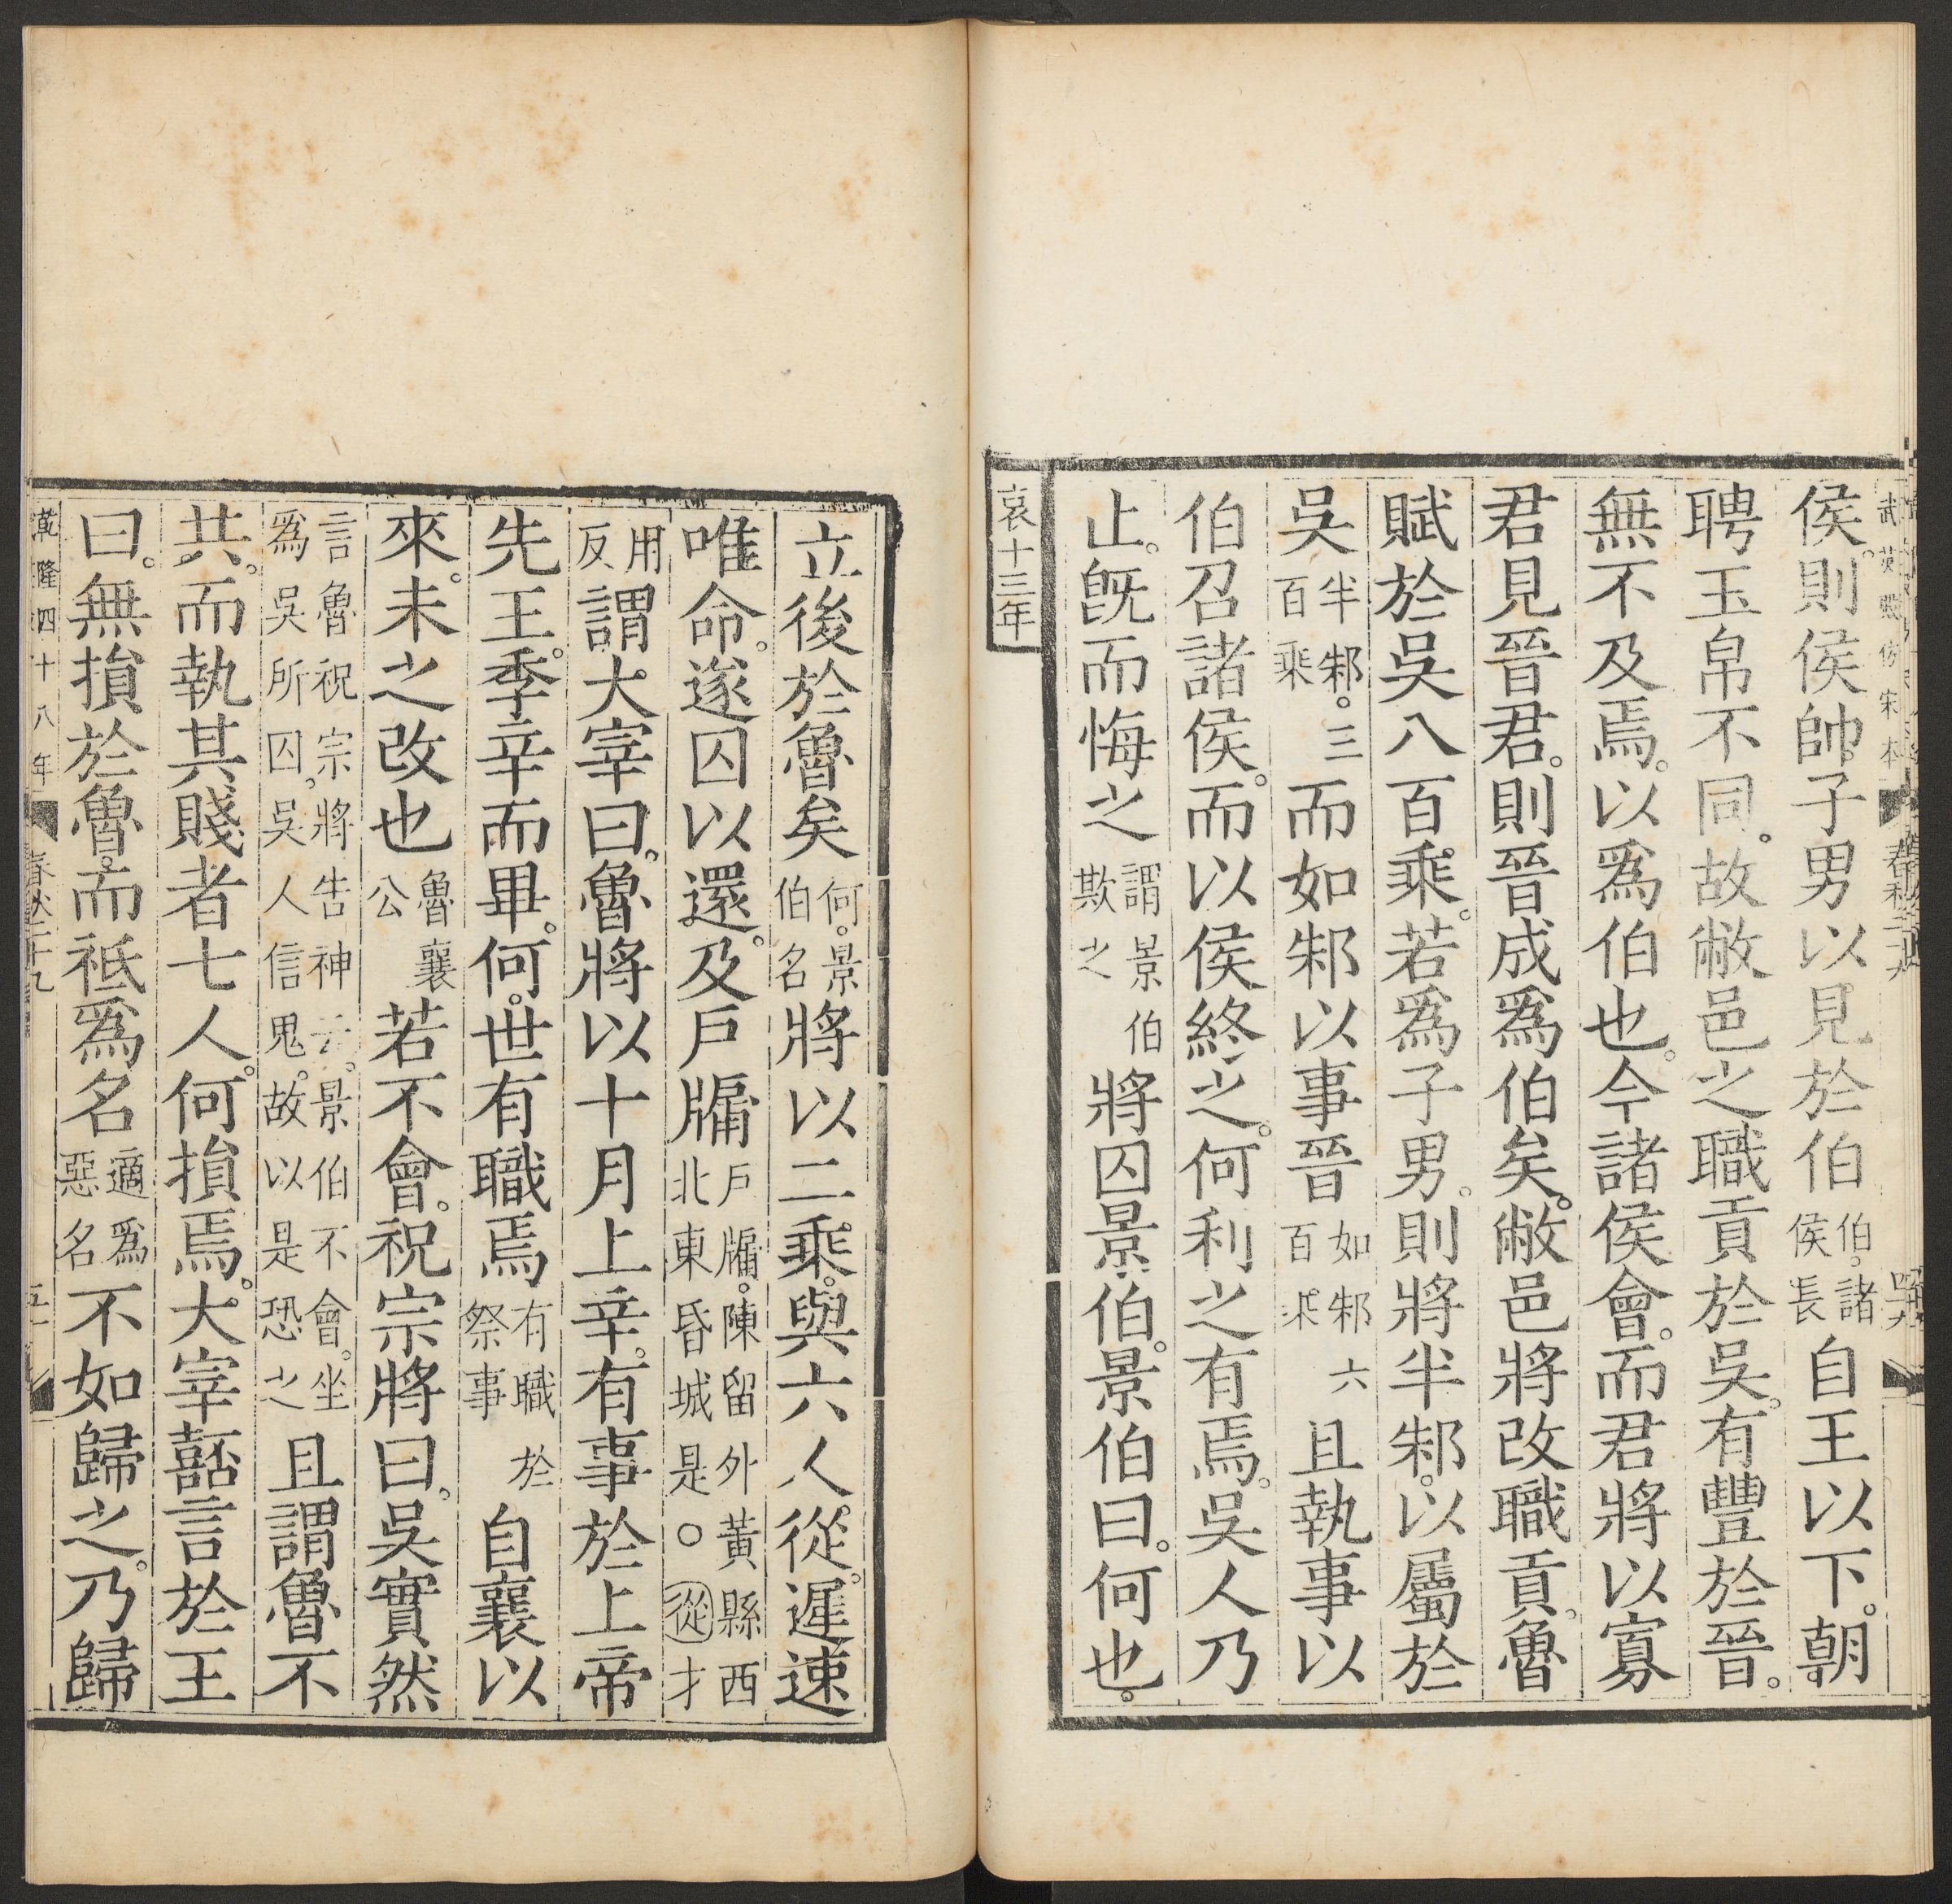 武英殿仿宋本
侯。則侯帥子男以見於伯伯。諸侯長自王以下。朝
聘玉帛不同。故敝邑之職貢於吳。有豐於晉。
無不及焉。以爲伯也。今諸侯會。而君將以寡
君見晉君。則晉成爲伯矣。敝邑將改職貢。魯
賦於吳八百乘。若爲子男。則將半邾。以屬於
吳半邾。三百乘而如邾以事晉如邾六百乘且執事以
伯召諸侯。而以侯終之。何利之有焉。吳人乃
止。旣而悔之謂景伯欺之將囚景伯。景伯曰。何也。
哀十三年
立後於魯矣何。景伯名將以二乘。與六人從。遲速
唯命。遂囚以還。及戶牖戶牖。陳留外黃縣西北東昏城是。○從才
用反謂大宰曰。魯將以十月上辛。有事於上帝
先王。季辛而畢。何。世有職焉有職於祭事自襄以
來。未之改也魯襄公若不會。祝宗將曰。吳實然
言魯祝宗將告神云。景伯不會。坐爲吳所囚。吳人信鬼。故以是恐之且謂魯不
共。而執其賤者七人。何損焉。大宰嚭言於王
曰。無損於魯。而祗爲名適爲惡名不如歸之。乃歸
乾隆四十八年
春秋三十九